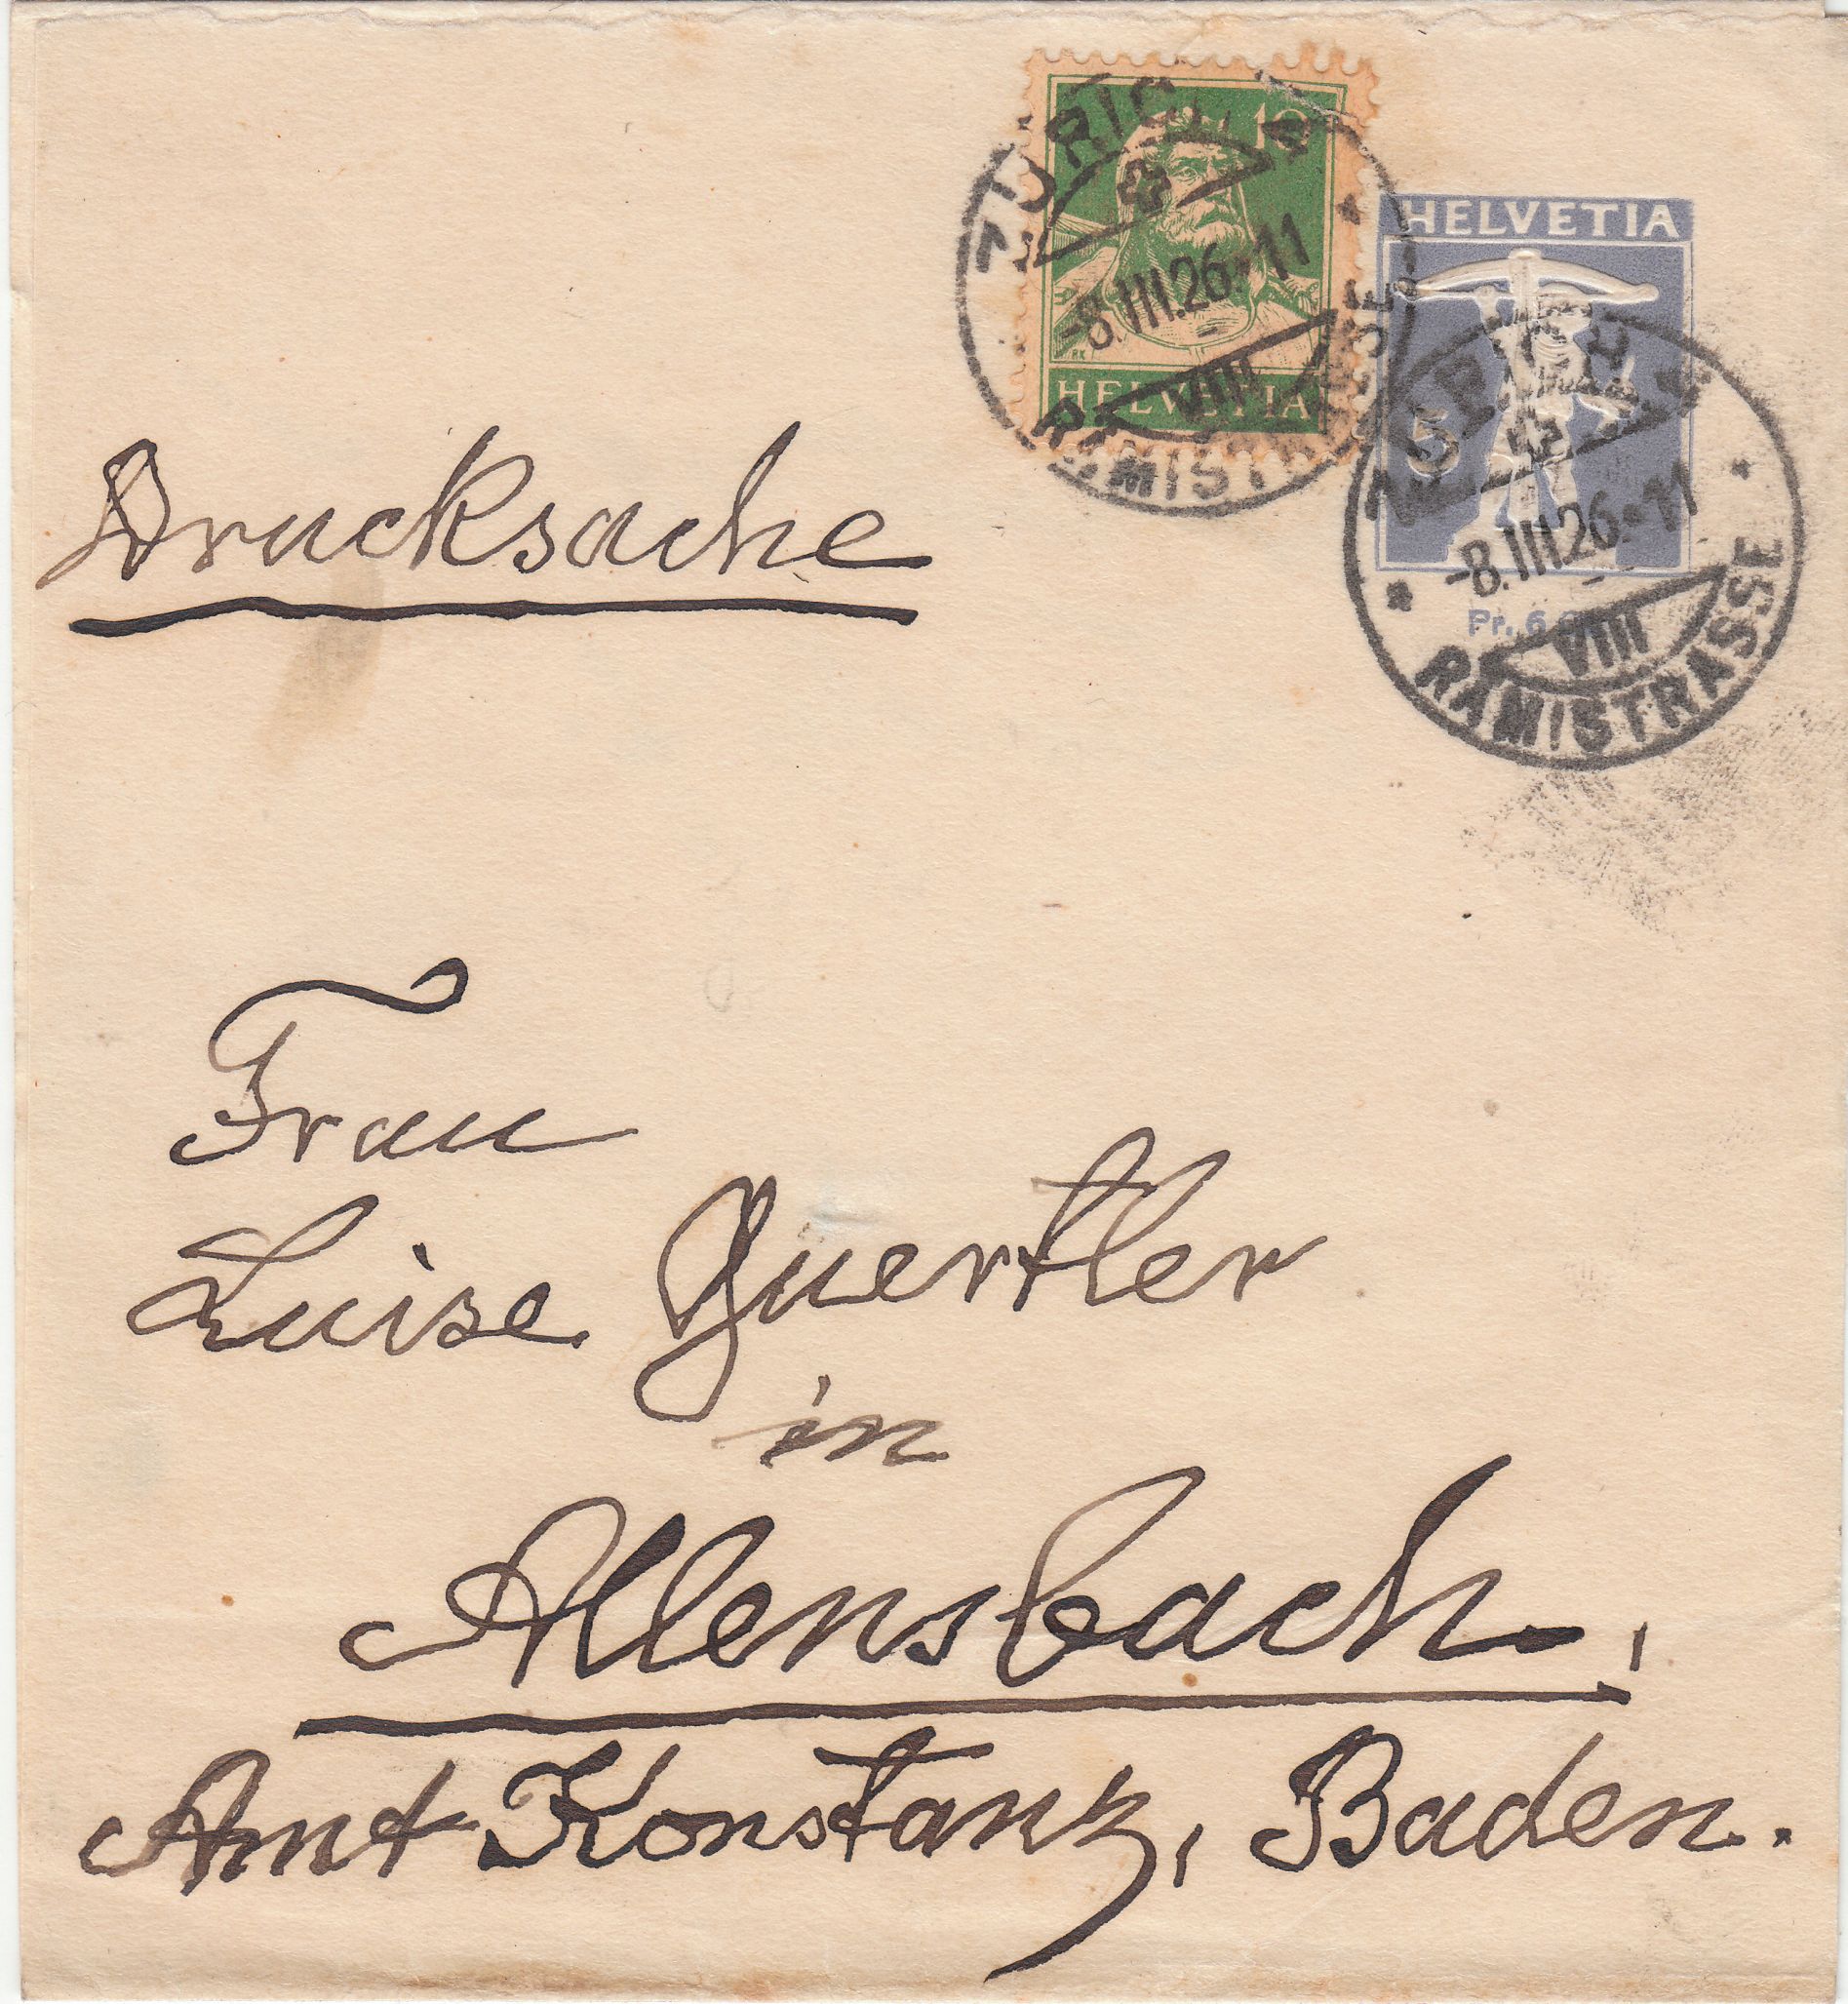 ZÜRICH
10
-8.III.26.-11
VIII
RÄMISTRASSE
RK
HELVETIA
HELVETIA
5
ZÜRICH
-8.III.26.-11
Pr. 6
VIII
RÄMISTRASSE
Drucksache
Frau
Luise Guertler
in
Allensbach,
Amt Konstanz, Baden.